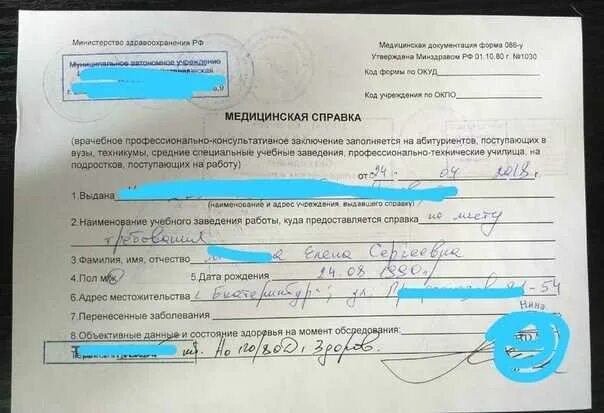 Министерство здравоохранения РФ
Медицинская документация форма 086-у
Утверждена Минздравом РФ 01.10.80 г. №1030
Муниципальное автономное учреждение
Код формы по ОКУД
Код учреждения по ОКПО
МЕДИЦИНСКАЯ СПРАВКА
(врачебное профессионально-консультативное заключение заполняется на абитуриентов, поступающих в
вузы, техникумы, средние специальные учебные заведения, профессионально-технические училища, на
подростков, поступающих на работу)
от 24 04 2018 г.
1.Выдана
(наименование и адрес учреждения, выдавшего справку)
2.Наименование учебного заведения работы, куда предоставляется справка по месту
требования
3.Фамилия, имя, отчество Елена Сергеевна
4.Пол м/ж 5.Дата рождения 24.08 1990г
6.Адрес местожительства г. Екатеринбург, ул. -54
7.Перенесенные заболевания
Нина
8.Объективные данные и состояние здоровья на момент обследования:
120/80 Здоров.